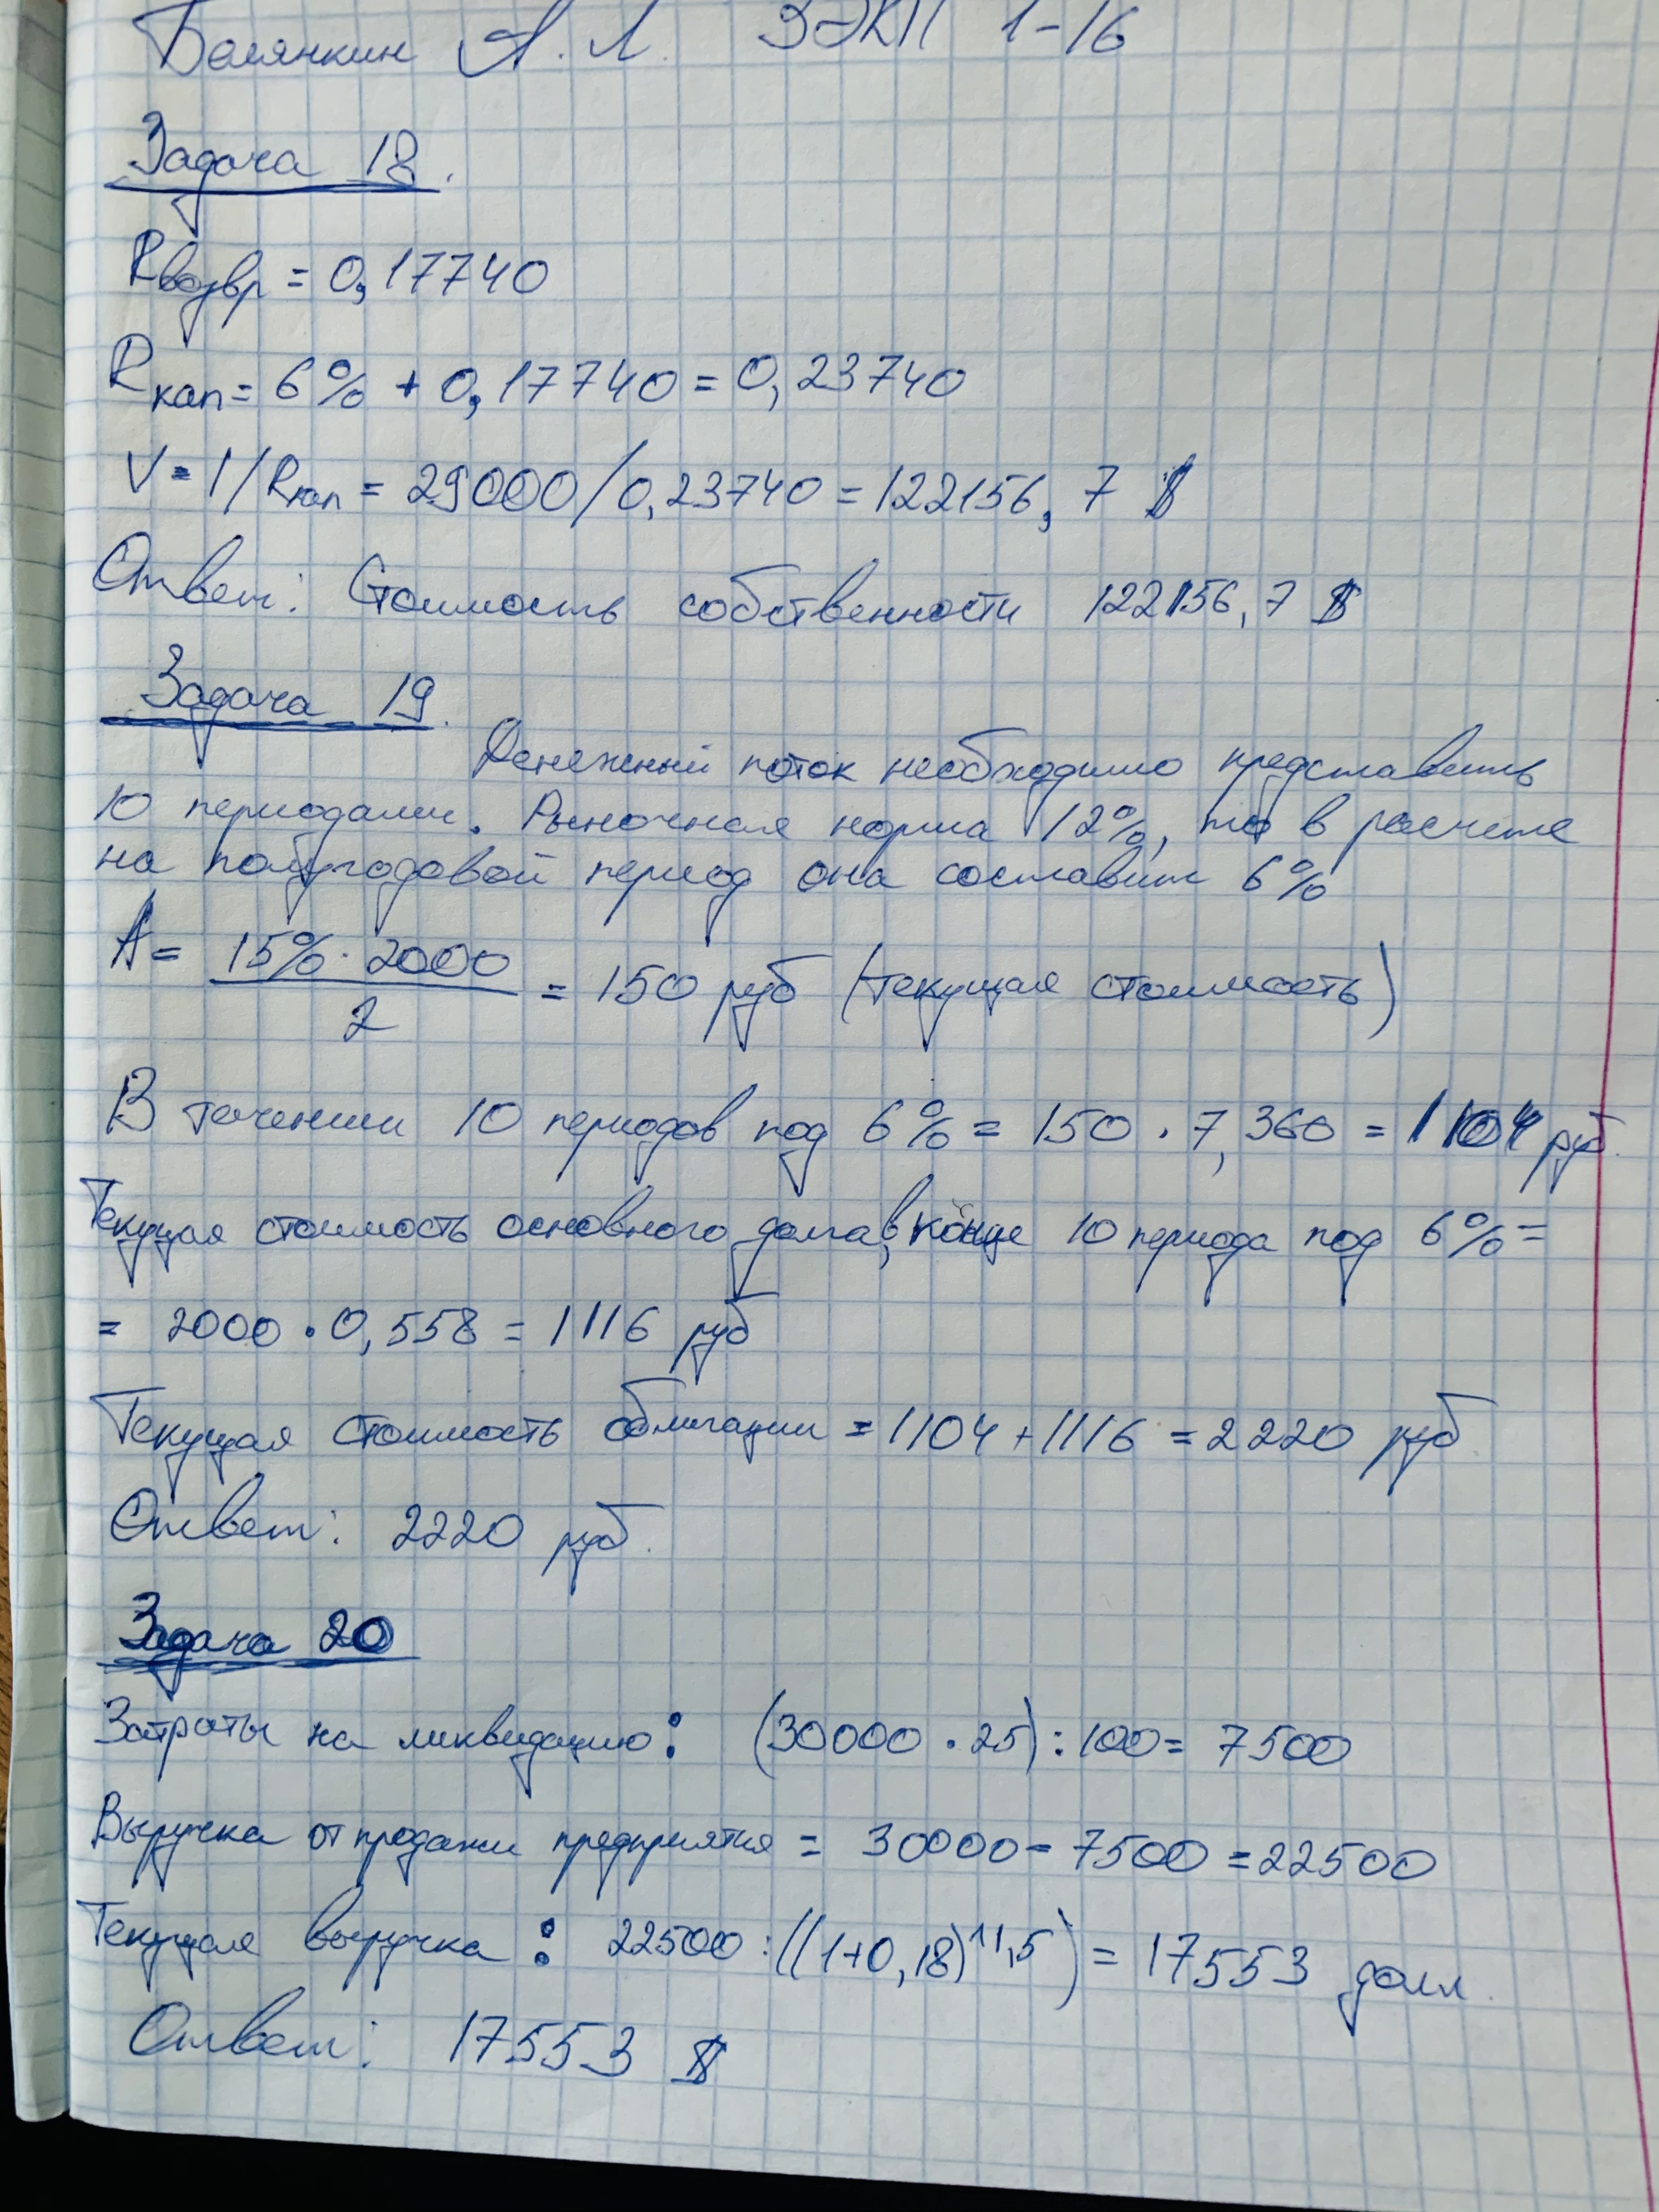 Белянкин А. Л. ЗЭКП 1-16
Задача 18.
Rвозвр = 0,17740
Rкап = 6% + 0,17740 = 0,23740
V = I/Rкап = 29000/0,23740 = 122156,7 $
Ответ: Стоимость собственности 122156,7 $
Задача 19.
Денежный поток необходимо представить
10 периодами. Рыночная норма 12%, то в расчете
на полугодовой период она составит 6%
A = 15% · 2000 / 2 = 150 руб (текущая стоимость)
В течении 10 периодов под 6% = 150 · 7,360 = 1104 руб.
Текущая стоимость основного долга в конце 10 периода под 6% =
= 2000 · 0,558 = 1116 руб
Текущая стоимость облигации = 1104 + 1116 = 2220 руб
Ответ: 2220 руб.
Задача 20
Затраты на ликвидацию: (30000 · 25) : 100 = 7500
Выручка от продажи предприятия = 30000 - 7500 = 22500
Текущая выручка : 22500 : ((1+0,18)^11,5) = 17553 долл.
Ответ: 17553 $